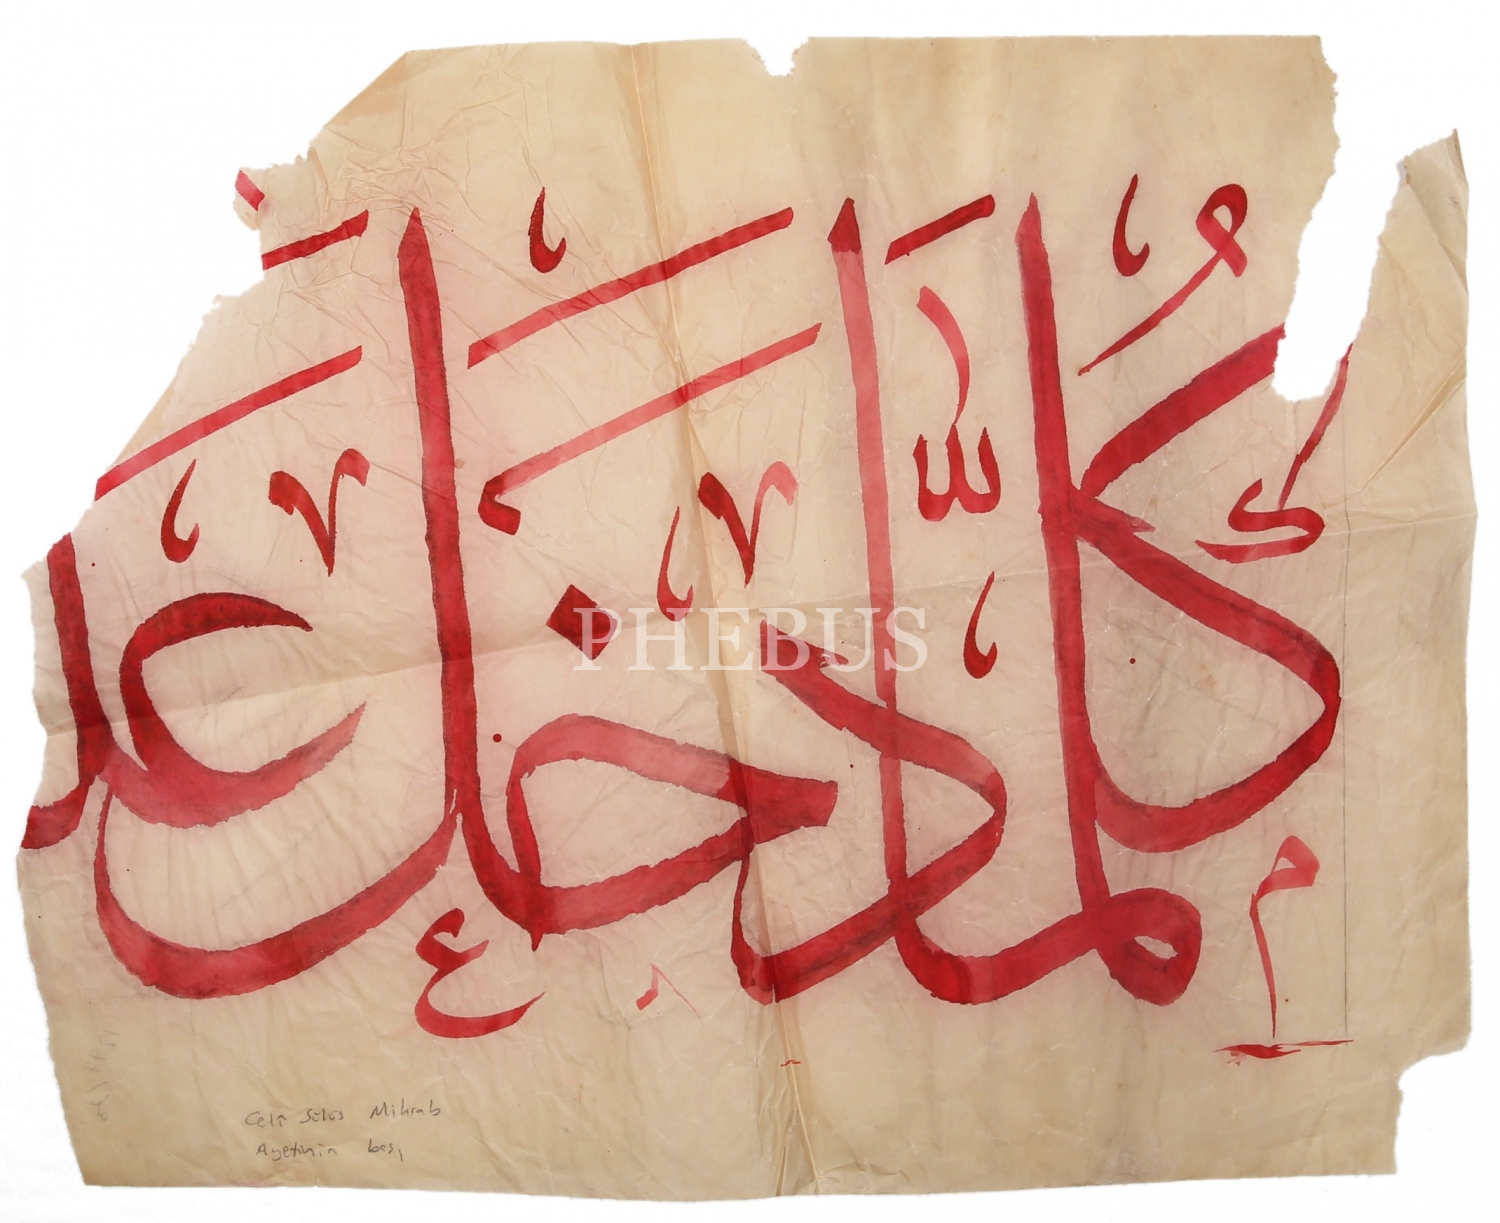 كُلَّمَا دَخَلَ عَلَ
PHEBUS
Celî Sülüs Mihrab
Ayetinin başı